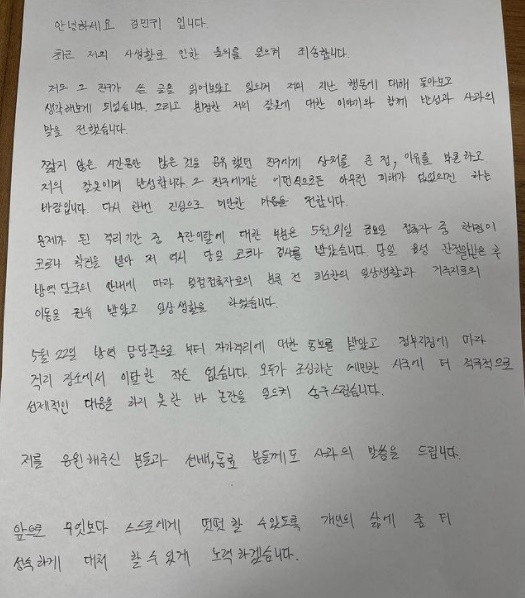 안녕하세요 김민귀 입니다.
최근 저의 사생활로 인한 물의를 일으켜 죄송합니다.
저도 그 친구가 쓴 글을 읽어보았고 읽으며 저의 지난 행동에 대해 돌아보고
생각해보게 되었습니다. 그리고 분명한 저의 잘못에 대한 이야기와 함께 반성과 사과의
말을 전했습니다.
짧지 않은 시간동안 많은 것을 공유했던 친구에게 상처를 준 점, 이유를 불문하고
저의 잘못이며 반성합니다 그 친구에게는 어떤식으로든 아무런 피해가 없었으면 하는
바람입니다. 다시 한번 진심으로 미안한 마음을 전합니다.
문제가 된 격리기간 중 무단이탈에 대한 부분은 5월 21일 금요일 접촉자 중 한명이
코로나 확진을 받아 저 역시 당일 코로나 검사를 받았습니다. 당일 음성 판정을 받은 후
방역 당국의 안내에 따라 밀접접촉자로의 분류 전 최소한의 일상생활과 거주지로의
이동을 권유 받았고 일상생활을 하였습니다.
5월 22일 방역 담당관으로 부터 자가격리에 대한 통보를 받았고 정부지침에 따라
격리 장소에서 이탈한 적은 없습니다. 모두가 조심하는 예민한 시국에 더 적극적으로
선제적인 대응을 하지 못한 바 논란을 일으켜 송구스럽습니다.
저를 응원해주신 분들과 선배,동료 분들께도 사과의 말씀을 드립니다.
앞으로 무엇보다 스스로에게 떳떳할 수있도록 개인의 삶에 좀 더
성숙하게 대처 할 수 있게 노력하겠습니다.